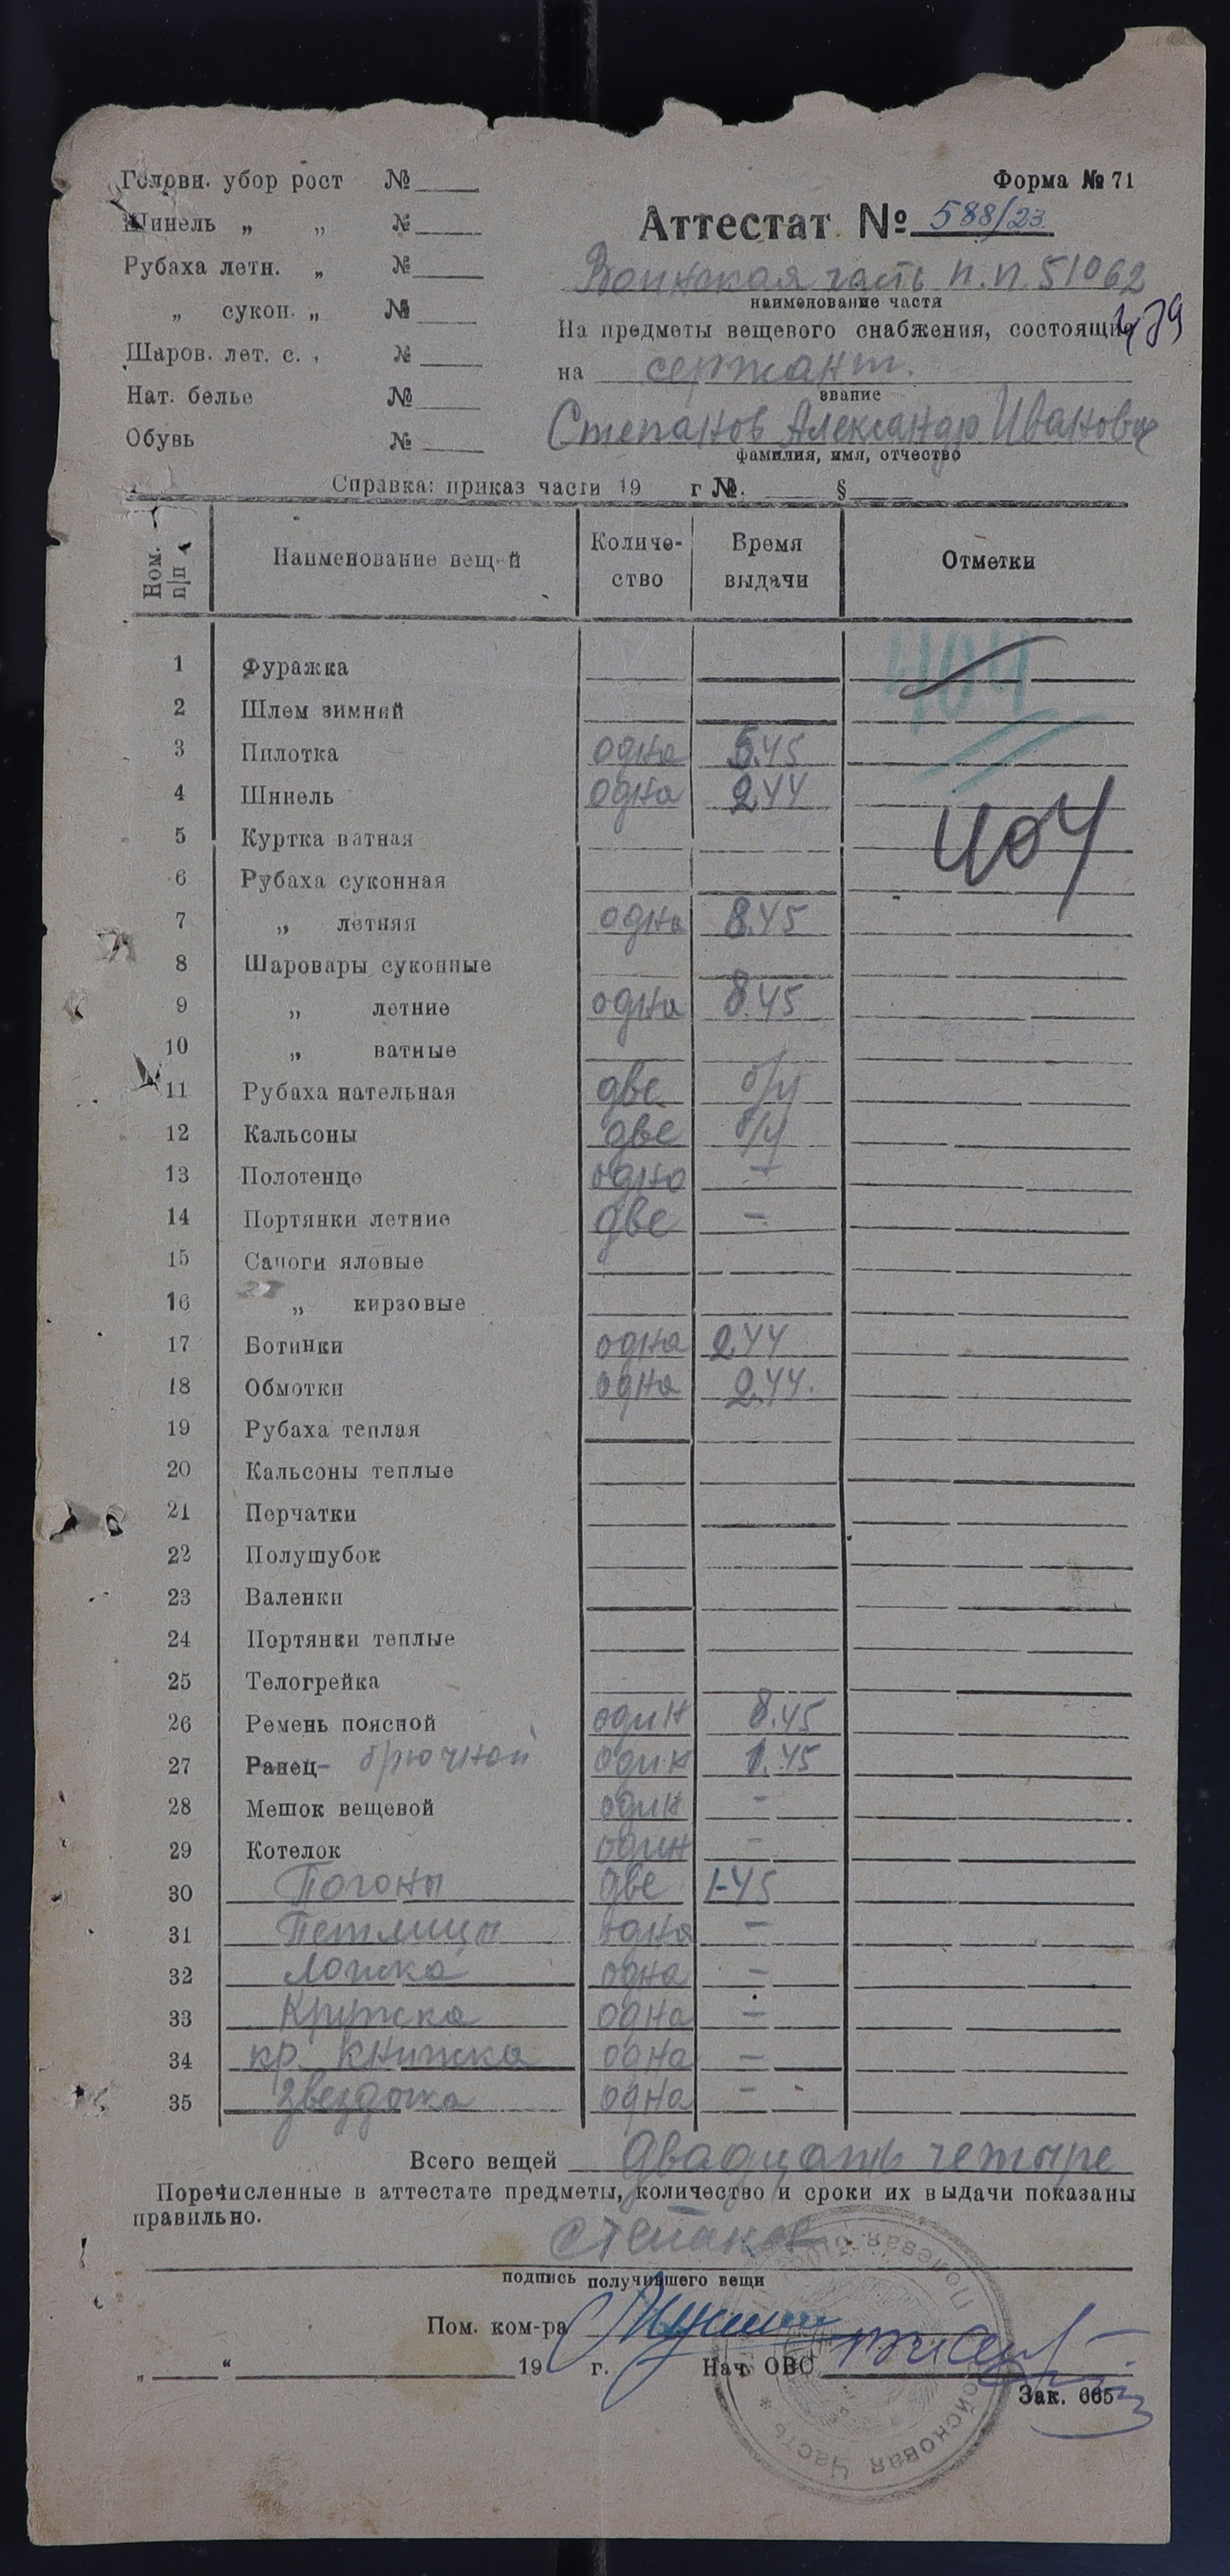 Головн. убор рост № ____
Форма № 71
Шинель „ „ № ____
Аттестат № 588/23
Рубаха летн. „ № ____
Воинская часть п.п. 51062
наименование части
„ сукон. „ № ____
На предметы вещевого снабжения, состоящие
Шаров. лет. с. , № ____
на сержант.
звание
Нат. белье № ____
Степанов Александр Иванович
Обувь № ____
фамилия, имя, отчество
Справка: приказ части 19 г №. ____ § ____
Ном. п|п Наименование вещей Количество Время выдачи Отметки
1 Фуражка 404
2 Шлем зимний
3 Пилотка одна 5.45
4 Шинель одна 2.44
5 Куртка ватная 404
6 Рубаха суконная
7 „ летняя одна 8.45
8 Шаровары суконные
9 „ летние одна 8.45
10 „ ватные
11 Рубаха нательная две б/у
12 Кальсоны две б/у
13 Полотенце одно -
14 Портянки летние две -
15 Сапоги яловые
16 „ кирзовые
17 Ботинки одна 2.44
18 Обмотки одна 2.44.
19 Рубаха теплая
20 Кальсоны теплые
21 Перчатки
22 Полушубок
23 Валенки
24 Портянки теплые
25 Телогрейка
26 Ремень поясной один 8.45
27 Ранец- брючной один 1.45
28 Мешок вещевой один -
29 Котелок один -
30 Погоны две 1-45
31 Петлицы одна -
32 Ложка одна -
33 Кружка одна -
34 кр. книжка одна -
35 звездочка одна -
Всего вещей двадцать четыре
Поречисленные в аттестате предметы, количество и сроки их выдачи показаны
правильно.
Степанов
подпись получившего вещи
Пом. ком-ра
„____“ ____ 19 г. Нач. ОВС
Зак. 665
Полевая Войсковая Часть *